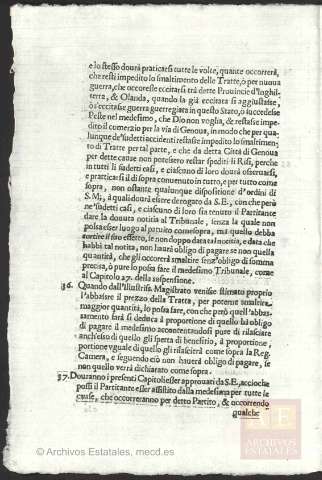 e lo stesso dourà praticarsi tutte le volte, quante occorrerà,
che resti impedito lo smaltimento delle Tratte, ò per nuoua
guerra, che occoresse eccitarsi trà dette Prouincie d'Inghil-
terra, & Olanda, quando la già eccitata si aggiustasse,
ò s'eccitasse guerra guerregiata in questo Stato, ò succedesse
Peste nel medesimo, che Dio non voglia, & restasse impe-
dito il comerzio per la via di Genoua, in modo che per qua-
lunque de'sudetti accidenti restasse impedito lo smaltimen-
to di Tratte per tal parte, e che da detta Città di Genoua
per dette cause non potessero restar spediti li Risi, perche
in tutti li sudetti casi, e ciascuno di loro dourà osseruarsi,
e praticarsi il di sopra conuenuto in tutto, e per tutto come
sopra, non ostante qualunque dispositione d'ordini di
S.M., à quali dourà essere derogato da S.E., con che però
ne'sudetti casi, e ciascuno di loro sia tenuto il Partitante
dare la douuta notitia al Tribunale, senza la quale non
possa esser luogo al patuito come sopra, mà quello debba
sortire il suo effetto, se non doppo data tal notitia, e data che
habbi tal notitia, non haurà obligo se non quella
quantità, che gli occorrerà smaltire senz'obligo di somma
precisa, ò pure lo possa fare il medesimo Tribunale, come
al Capitolo 27. della suspensione.
36. Quando dall'Illustriss. Magistrato venisse stimato proprio
l'abbassare il prezzo della Tratta, per poterne smaltire
maggior quantità, lo possa fare, con che però quell'abbas-
samento farà si deduca à proportione di quello hà obligo
di pagare il medesimo accontentandosi pure di rilasciare
anch'esso di quello gli spetta di benefitio, à proportione,
portione vguale di quello gli rilascierà come sopra la Reg.
Camera, e seguendo ciò non hauerà obligo di pagare, se
non quello verrà dichiarato come sopra.
37. Douranno i presenti Capitoli esser approuati da S.E., accioche
possi il Partitante esser assistito dalla medesima per tutte le
cause, che occorreranno per detto Partito, & occorrendo
qualche
ARCHIVOS
ESTATALES
© Archivos Estatales, mecd.es